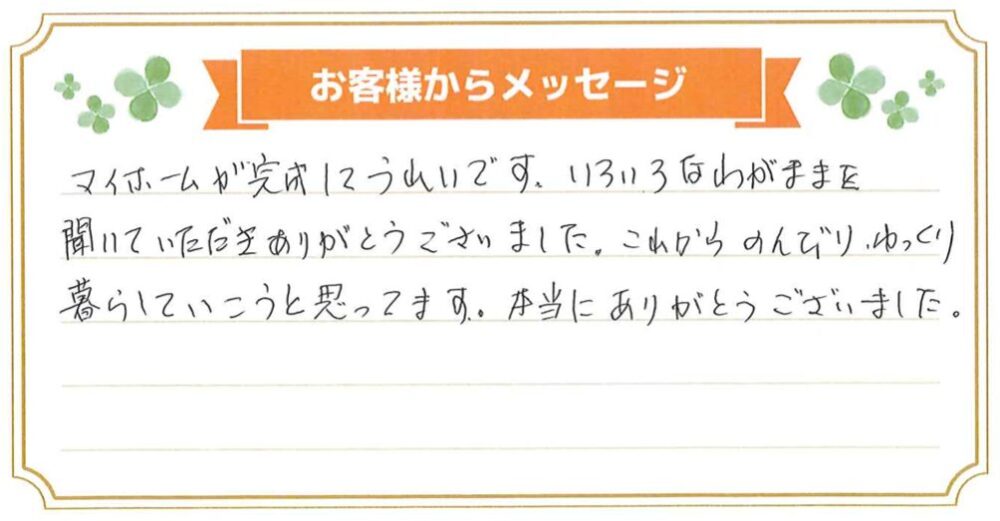 お客様からメッセージ
マイホームが完成してうれいです。いろいろなわがままを
聞いていただきありがとうございました。これからのんびり、ゆっくり
暮らしていこうと思ってます。本当にありがとうございました。